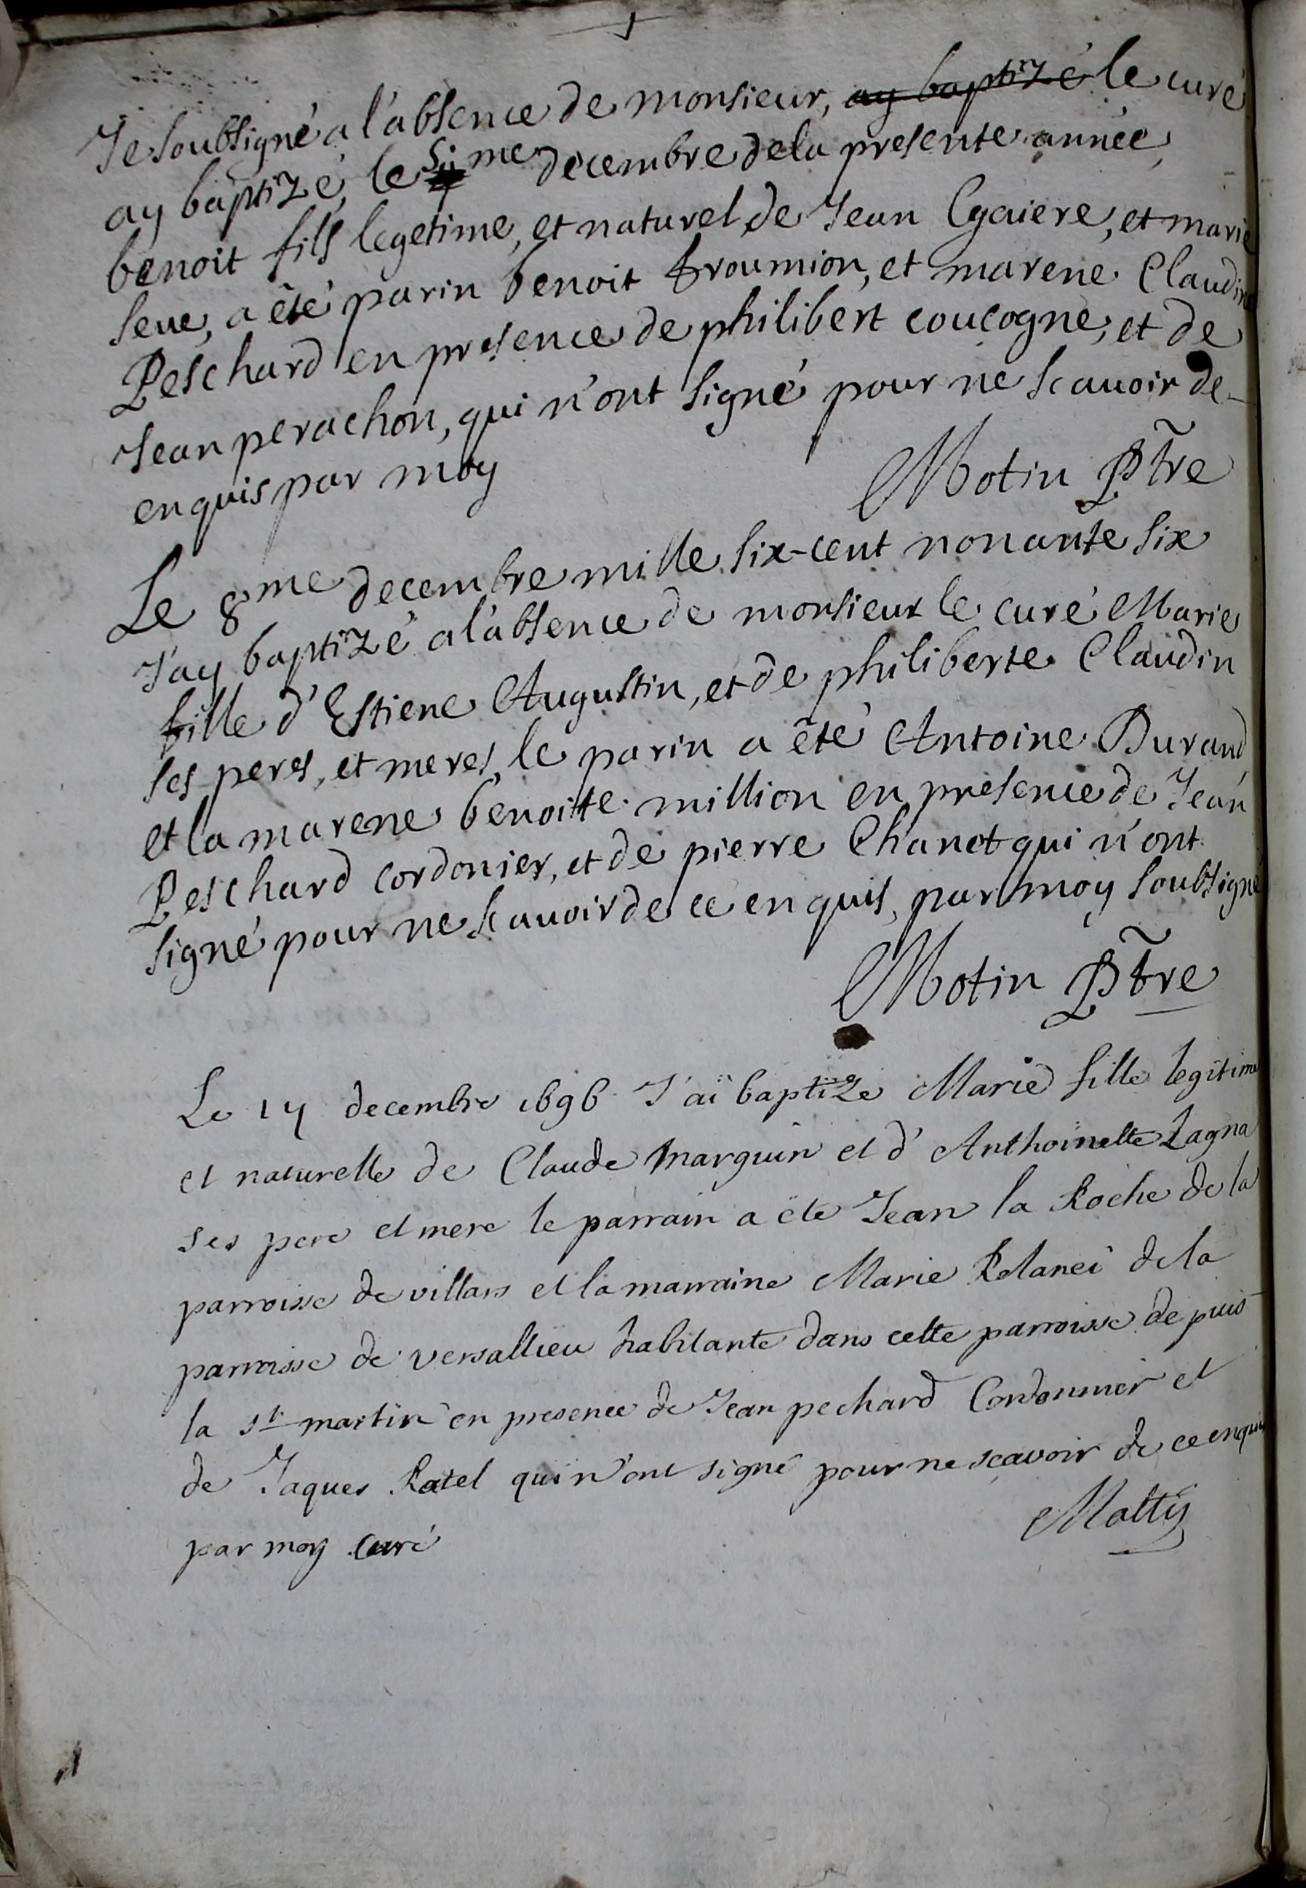 Je soubsigné a l'absence de monsieur, ay baptizé le curé
ay baptizé, le me decembre de la presente année,
benoit fils legetime, et naturel de Jean Cgaiere, et marie
seue, a êté parin benoit froumion, et marene Claudine
Peschard en presence de philibert coucogne, et de
Jean perachon, qui n'ont signé pour ne scauoir de
enquis par moy
Motin Ptre
Le 8me decembre mille six-cent nonante six
J'ay baptizé a l'absence de monsieur le curé Marie
fille d'Estiene Augustin, et de philiberte Claudin
ses peres, et meres, le parin a êté Antoine Durand
et la marene benoitte million en presence de Jean
Peschard cordonier, et de pierre Chanet qui n'ont
signé pour ne scauoir de ce enquis, par moy soubsigné
Motin Ptre
Le decembre 1696 J'aï baptize Marie fille legitime
et naturelle de Claude Marguin et d'Anthoinette Lagna
ses pere et mere le parrain a ete Jean la Roche de la
parroisse de villars et la marraine Marie Rolanei de la
parroisse de versallieu habitante dans cette parroisse depuis
la st martin en presence de Jean pechard Cordonnier et
de Jaques Ratel qui n'ont signé pour ne scavoir de ce enquis
par moy curé